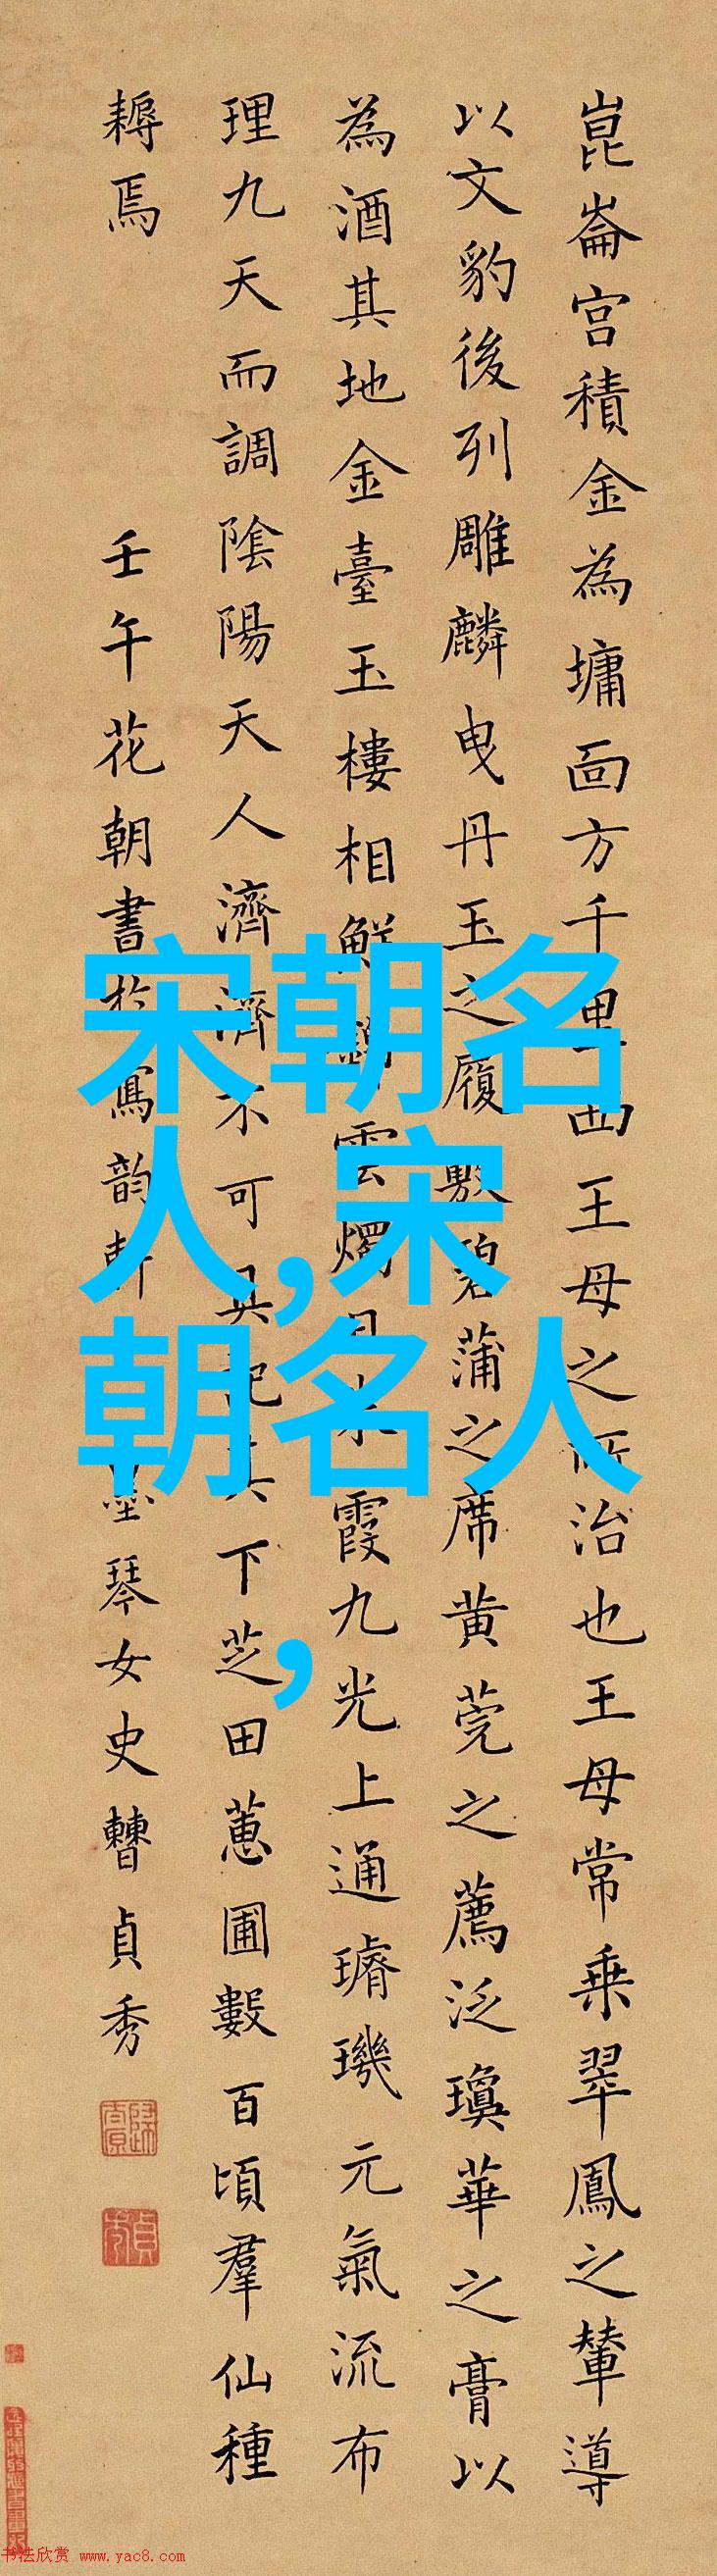 崑崙宮積金為墉面方千里西王母之所治也王母常乗翠鳳之輦導
以文豹後列雕麟曳丹玉之履敷碧蒲之席黄莞之薦泛瓊華之膏以
為酒其地金臺玉樓相鮮雲燭霞九光上通璿璣元氣流布
理九天而調陰陽天人濟濟不可具記其下芝田蕙圃數百頃羣仙種
耨焉
壬午花朝書於寫韵軒墨琴女史曹貞秀
宋朝名
人,宋
朝名人
,
书法欣赏 www.yac8.com